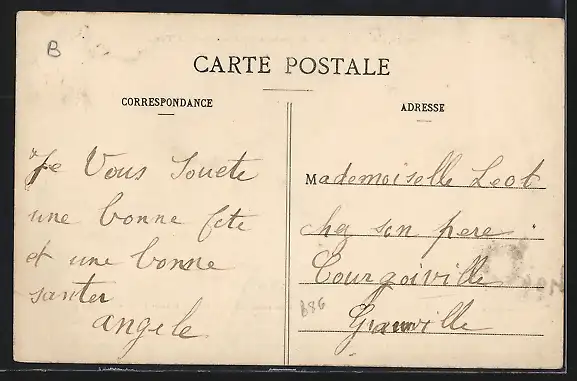 B
CARTE POSTALE
CORRESPONDANCE
Je Vous Souete
une bonne fete
et une bonne
santer
angele
ADRESSE
Mademoiselle Leot
chez son pere
Granville
B86